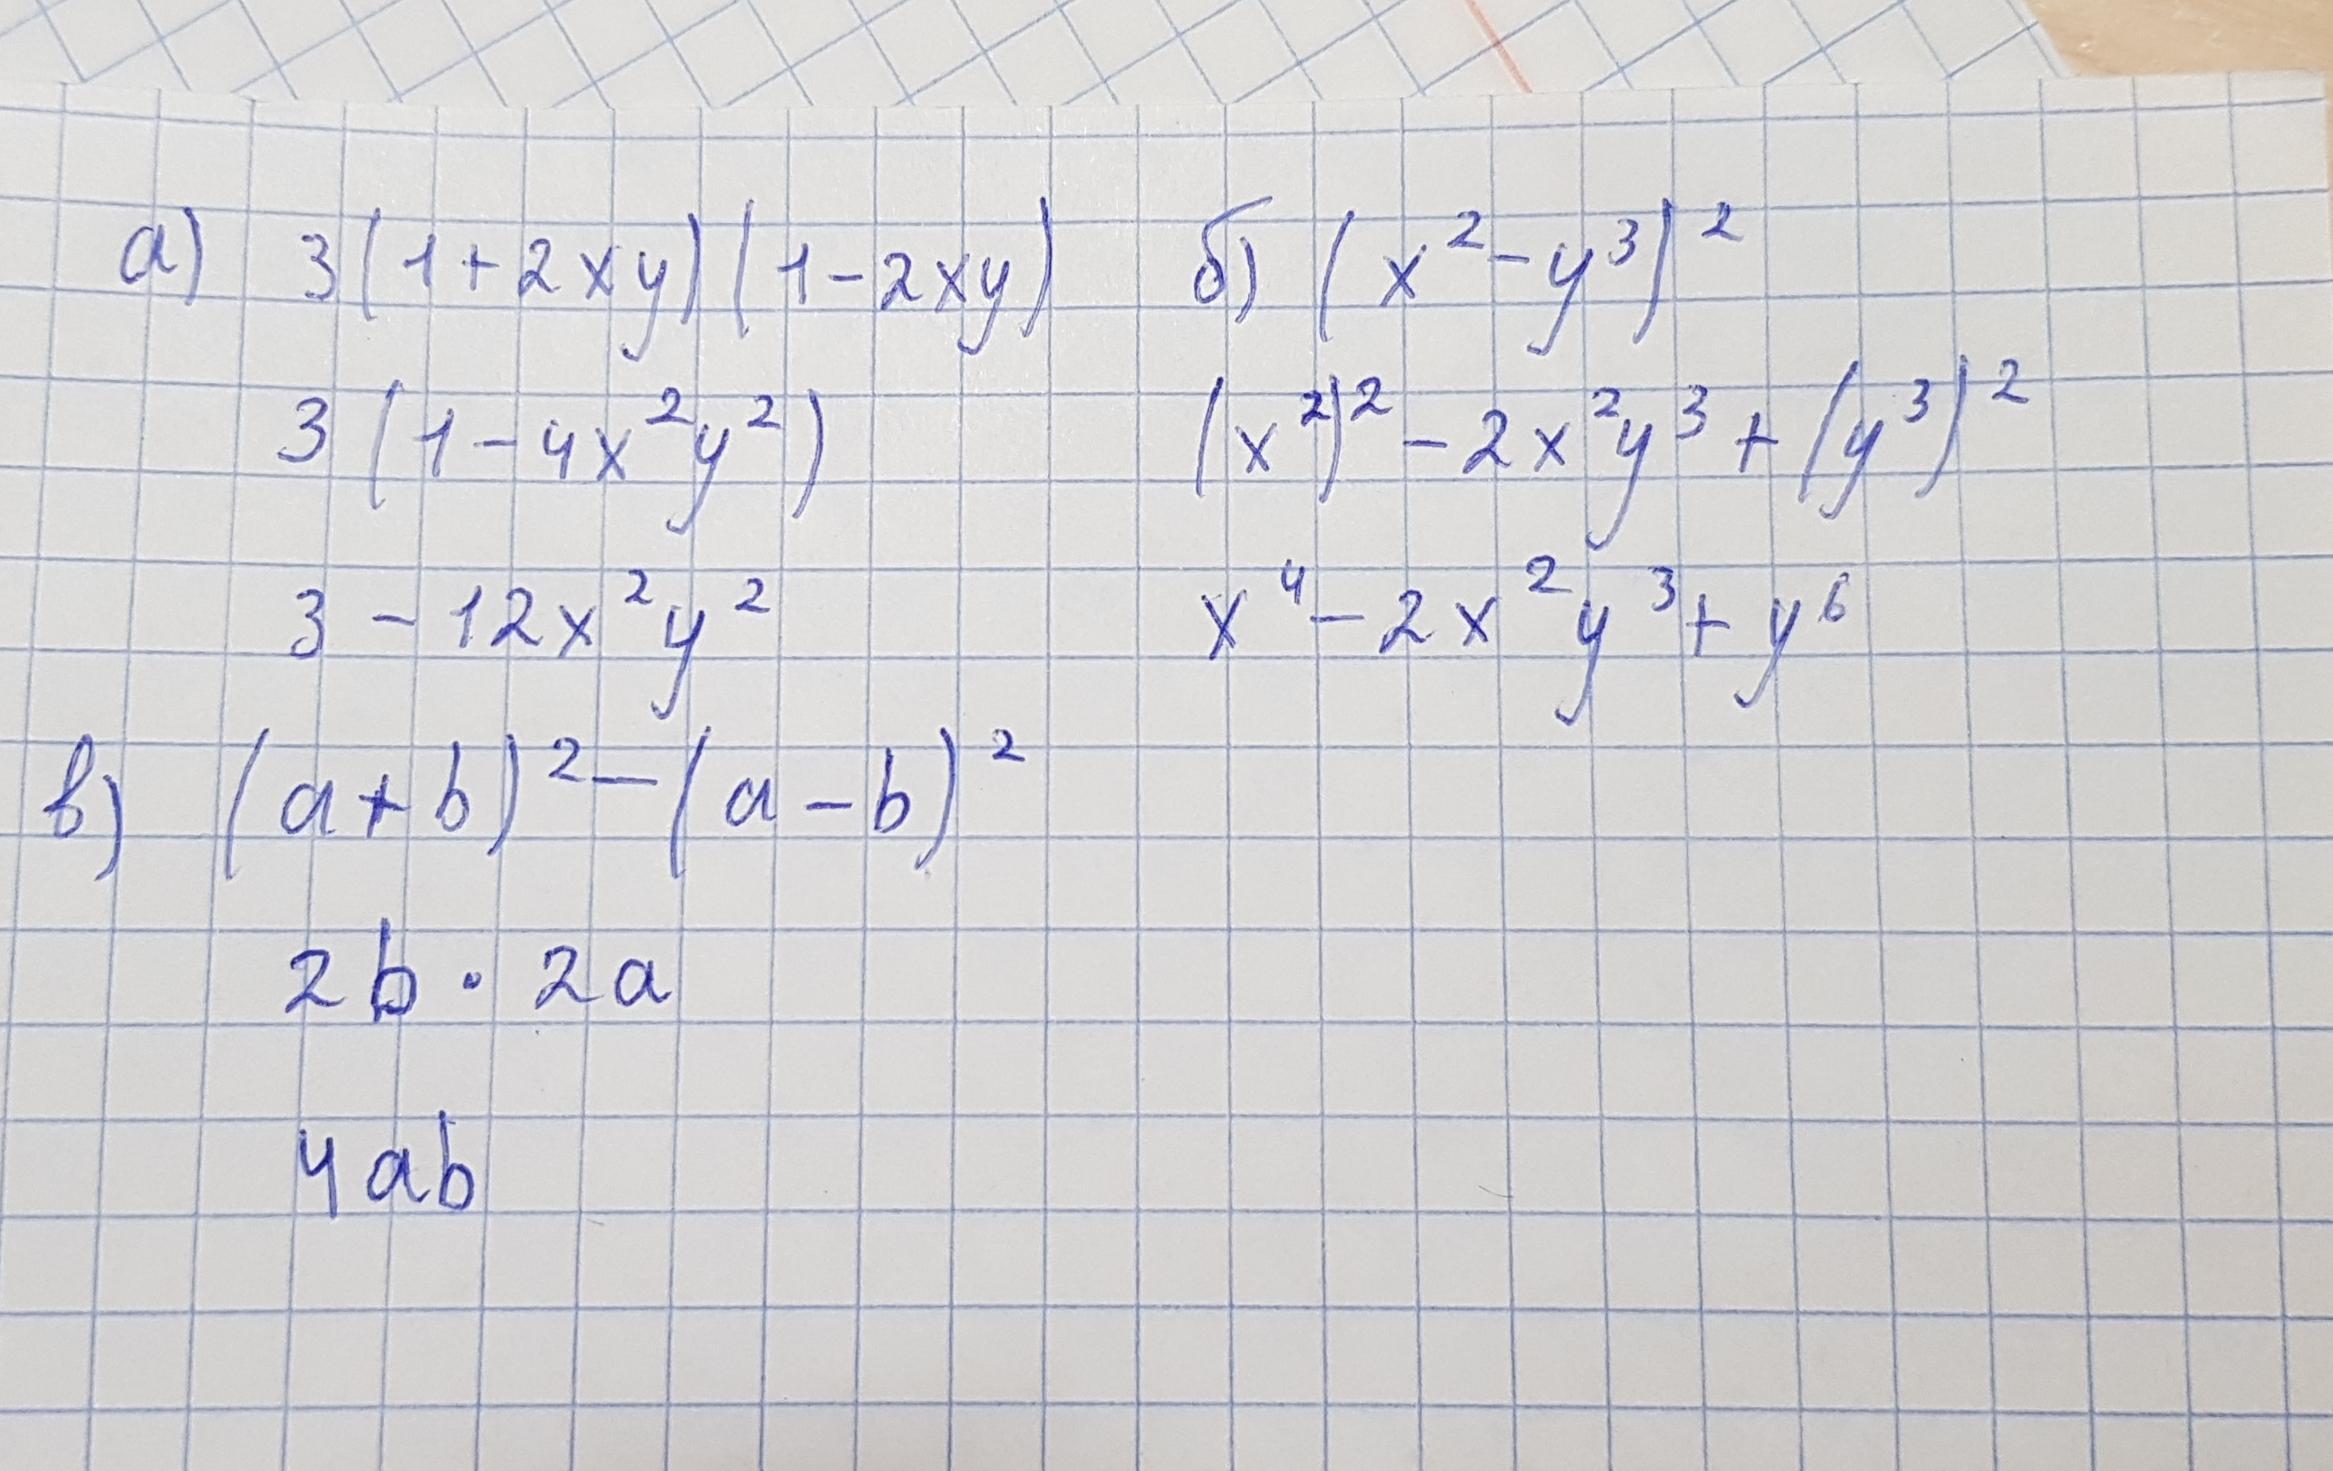 а) 3(1+2xy)(1-2xy)
3(1-4x²y²)
3-12x²y²
б) (x²-y³)²
(x²)²-2x²y³+(y³)²
x⁴-2x²y³+y⁶
в) (a+b)²-(a-b)²
2b·2a
4ab